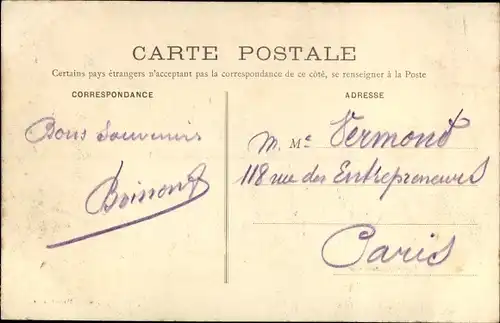 CARTE POSTALE
Certains pays étrangers n'acceptant pas la correspondance de ce côté, se renseigner à la Poste
CORRESPONDANCE
Bons Souvenirs
ADRESSE
M. Me Vermond
118 rue des Entrepreneurs
Paris